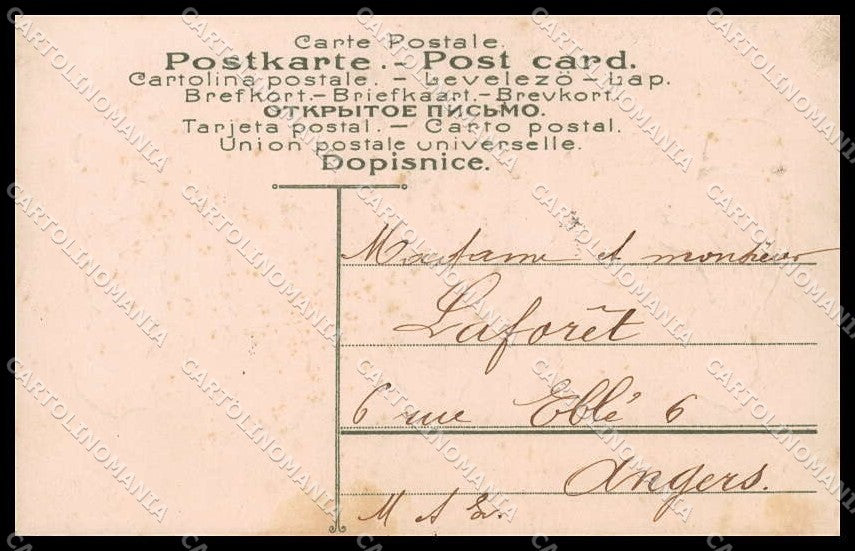 Carte Postale.
Postkarte.- Post card.
Cartolina postale. - Levelezö - Lap.
Brefkort.-Briefkaart.-Brevkort.
ОТКРЫТОЕ ПИСЬМО.
Tarjeta postal. - Carto postal.
Union postale universelle.
Dopisnice.
Madame et monsieur
Laforêt
6 rue Eblé 6
Angers.
M & L.
CARTOLINOMANIA